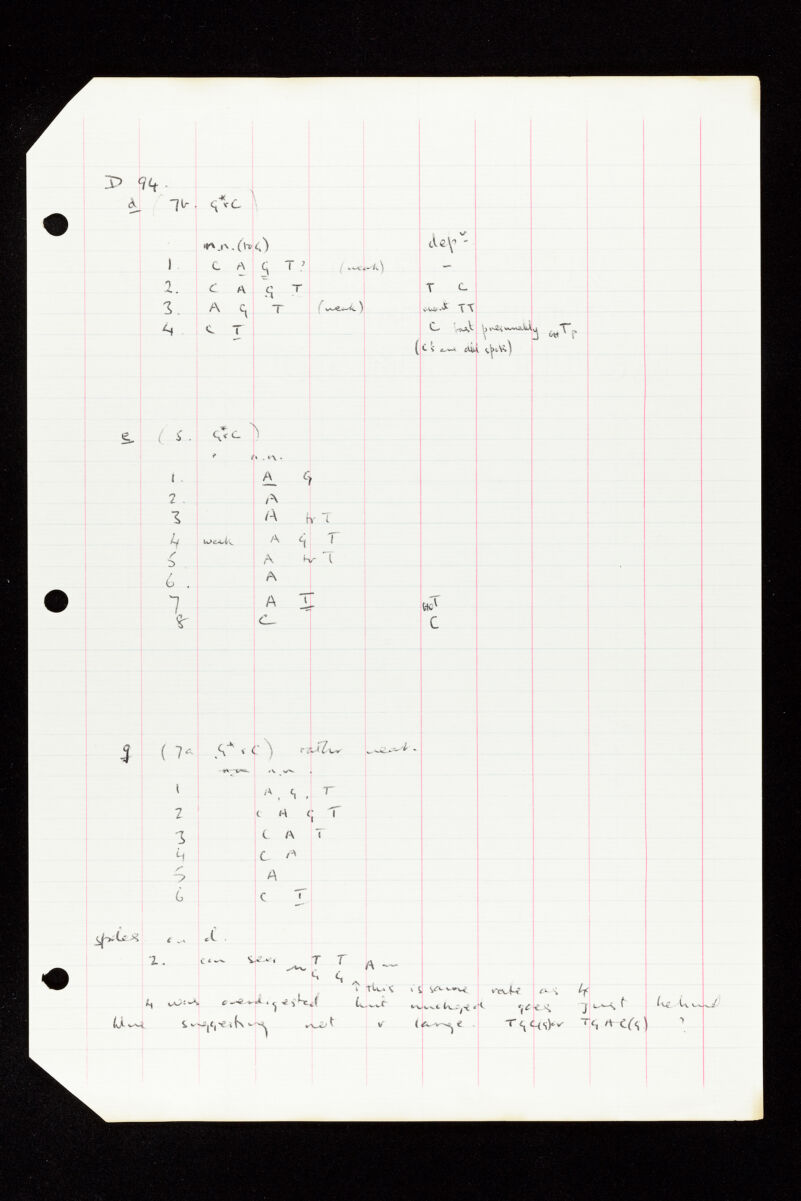 D 94.
d (7b. G*rC)
n.n.(to G) depn
1. C A G T? (weak) –
2. C A G T T C
3. A G T (weak) most TT
4. C T C but presumably Tp
(C's are did spots)
e (5. G*rC)
n.n.
1. A G
2. A
3 A tr T
4 weak A G T
5 A tr T
6. A
7 A T T
8 C C
g (7a G*rC) rather weak.
n.n.
1 A, G, T
2 C A G T
3 C A T
4 C A
5 A
6 C T
on d.
2. can see T T A –
G G
↑ this is same rate as 4
4 was overdigested but unchanged goes just behind
blue suggesting not v large. TGC(G) or TGAC(G) ?